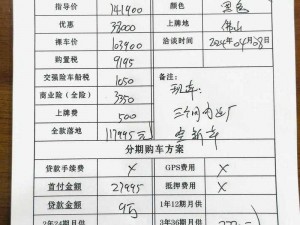 指导价 141900 颜色 黑色
优惠 38000 上牌地 佛山
裸车价 103900 洽谈时间 2024年04月08日
购置税 9195
交强险车船税 1050 备注:
商业险(全险) 3350 现车
上牌费 500 三个月内出厂
全款落地 117995元 全新车
分期购车方案
贷款手续费 X GPS费用 X
首付金额 27995 抵押费用 X
贷款金额 9万 1年12期月供
2年24期月供 3年36期月供